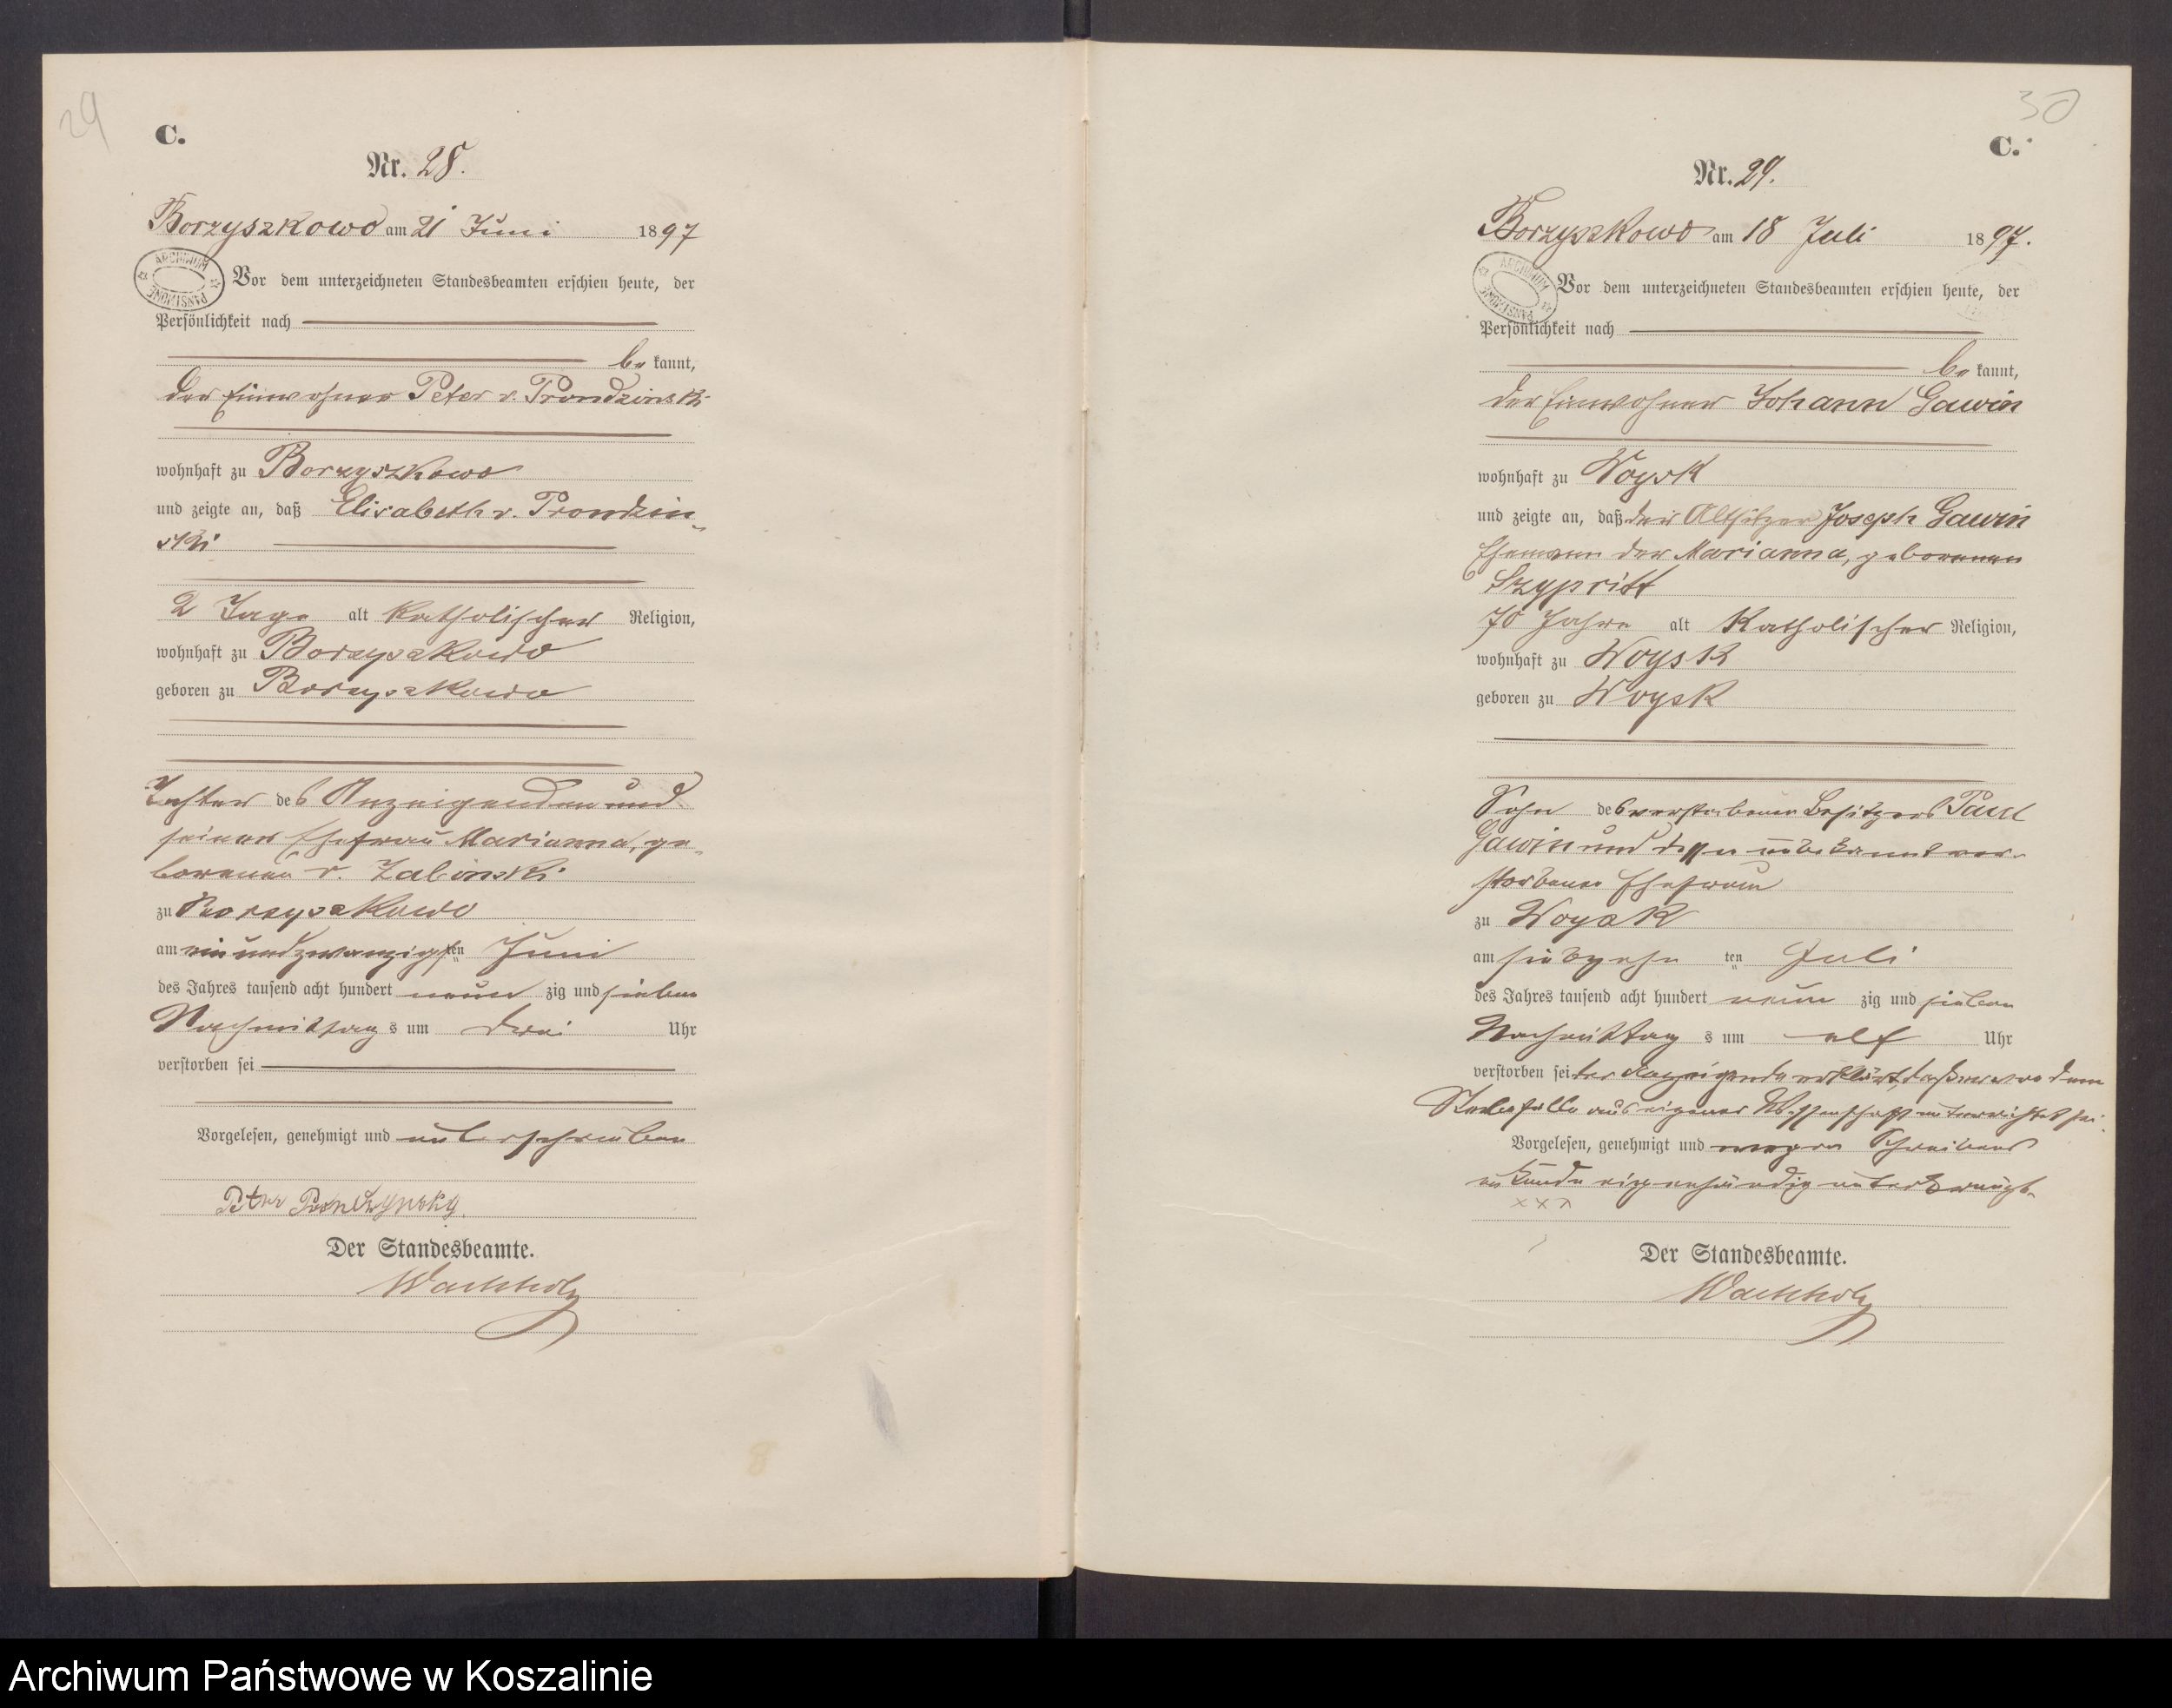 29
C.
Nr. 28.
Borzyszkowo am 21 Juni 1897
ARCHIWUM PAŃSTWOWE
Vor dem unterzeichneten Standesbeamten erschien heute, der
Persönlichkeit nach
be kannt,
der Einwohner Peter v. Prondzinski
wohnhaft zu Borzyszkowo
und zeigte an, daß Elisabeth v. Prondzin-
ski
2 Tage alt katholischer Religion,
wohnhaft zu Borzyszkowo
geboren zu Borzyszkowo
Tochter des Anzeigenden und
seiner Ehefrau Marianna, ge-
borenen v. Zabinski
zu Borzyszkowo
am einundzwanzigsten Juni
des Jahres tausend acht hundert neun zig und sieben
Nachmittags um drei Uhr
verstorben sei
Vorgelesen, genehmigt und unterschrieben
Peter
Der Standesbeamte.
Wachholz
30
C.
Nr. 29.
Borzyszkowo am 18 Juli 1897.
ARCHIWUM PAŃSTWOWE
Vor dem unterzeichneten Standesbeamten erschien heute, der
Persönlichkeit nach
be kannt,
der Einwohner Johann Gawin
wohnhaft zu Woysk
und zeigte an, daß der Altsitzer Joseph Gawin
Ehemann der Marianna, geborenen
Szypritt
70 Jahre alt katholischer Religion,
wohnhaft zu Woysk
geboren zu Woysk
Sohn des verstorbenen Besitzers Paul
Gawin und dessen unbekannt ver-
storbener Ehefrau
zu Woysk
am siebzehn ten Juli
des Jahres tausend acht hundert neun zig und sieben
Nachmittags um elf Uhr
verstorben sei der Anzeigende erklärt, daß er von dem
Sterbefalle aus eigener Wissenschaft unterrichtet sei.
Vorgelesen, genehmigt und wegen Schreibens
unkunde eigenhändig unterkreuzt.
x x x
Der Standesbeamte.
Wachholz
Archiwum Państwowe w Koszalinie